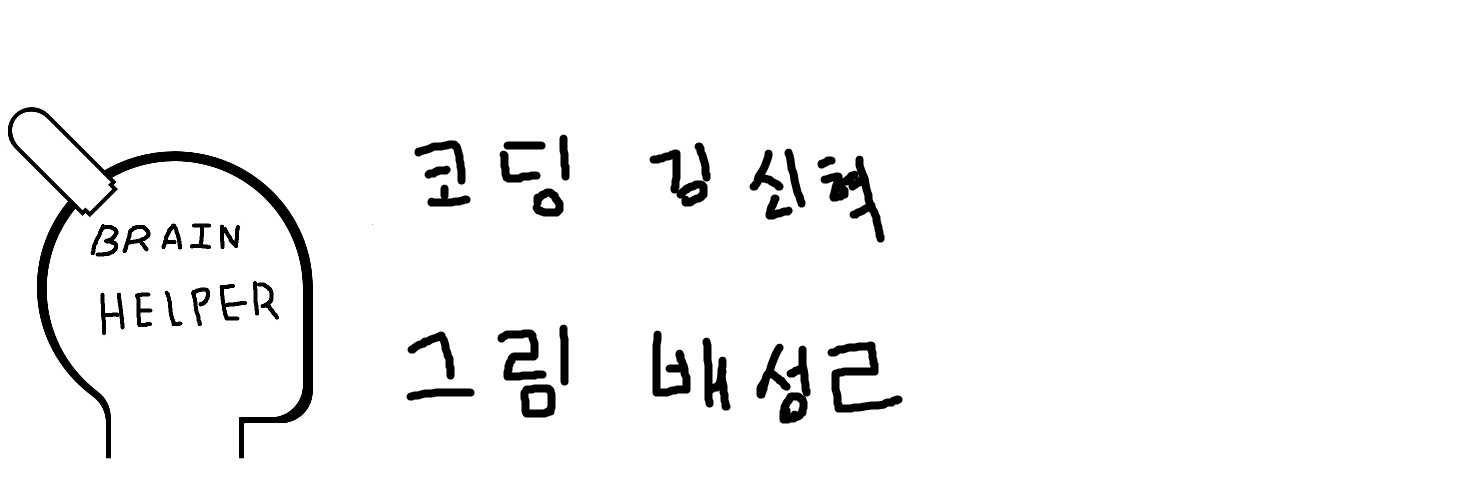 BRAIN
HELPER
코딩 김신혁
그림 배성르